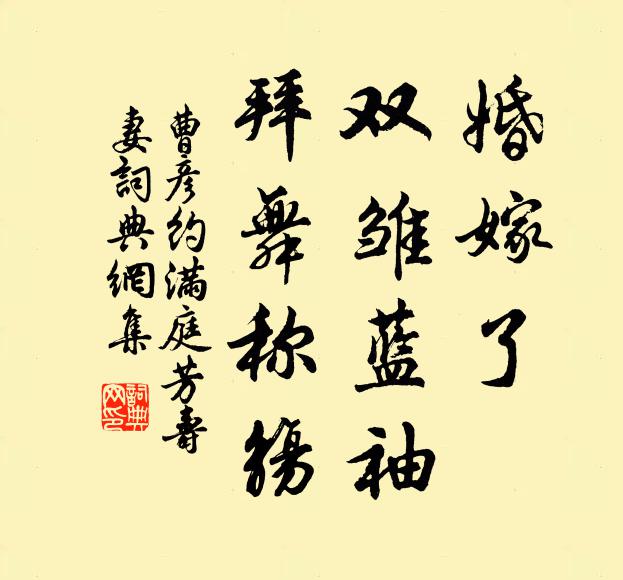 婚嫁了
双雏蓝袖
拜舞称觞
曹彦约满庭芳寿
妻词典网集
詞典网印